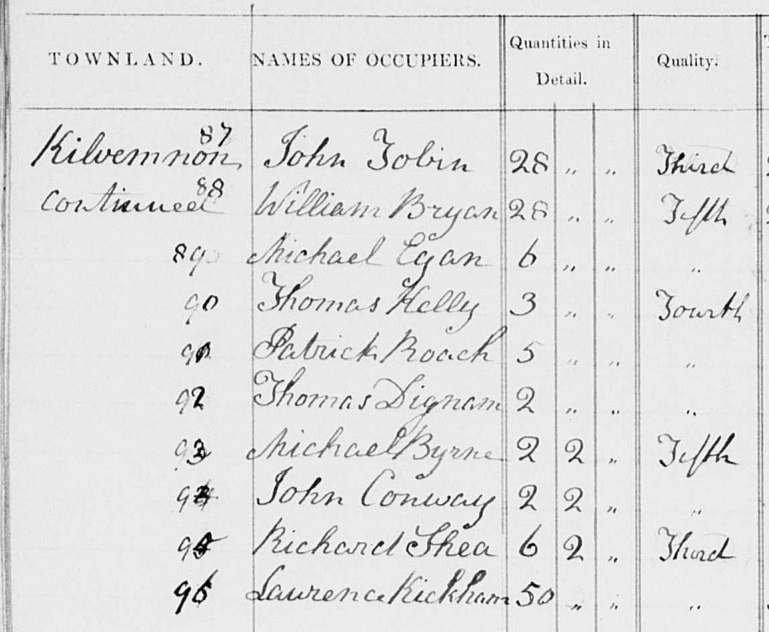 TOWNLAND. NAMES OF OCCUPIERS. Quantities in Detail. Quality.
Kilvemnon 87 John Tobin 28 „ „ Third
continued 88 William Bryan 28 „ „ Fifth
89 Michael Egan 6 „ „ „
90 Thomas Kelly 3 „ „ Fourth
91 Patrick Roach 5 „ „ „
92 Thomas Dignam 2 „ „ „
93 Michael Byrne 2 2 „ Fifth
94 John Conway 2 2 „ „
95 Richard Shea 6 2 „ Third
96 Laurence Kickham 50 „ „ „